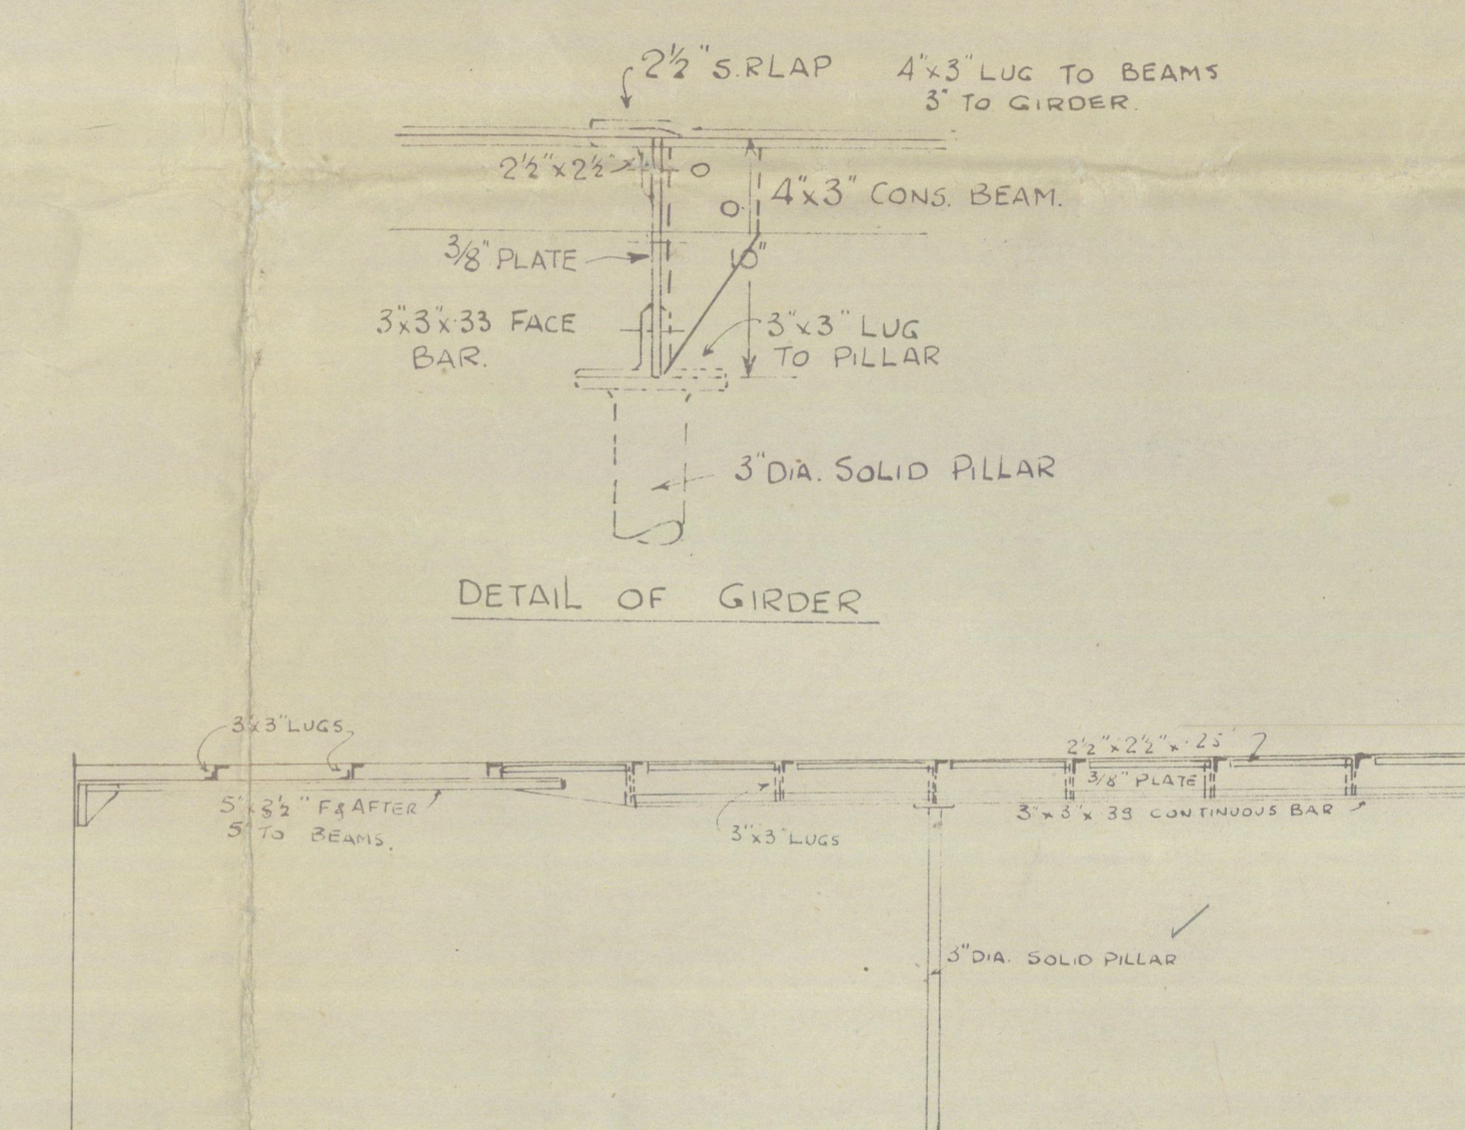 2½" S.RLAP
4"x3" LUG TO BEAMS
3" TO GIRDER.
2½"x2½"
4"x3" CONS. BEAM.
3/8" PLATE
10"
3"x3"x·33 FACE
BAR.
3"x3" LUG
TO PILLAR
3"DIA. SOLID PILLAR
DETAIL OF GIRDER
3"x3" LUGS
2½"x2½"x·25
3/8" PLATE
5"x3½" F&AFTER
5" TO BEAMS.
3"x3" LUGS
3"x3"x·39 CONTINUOUS BAR
3"DIA. SOLID PILLAR